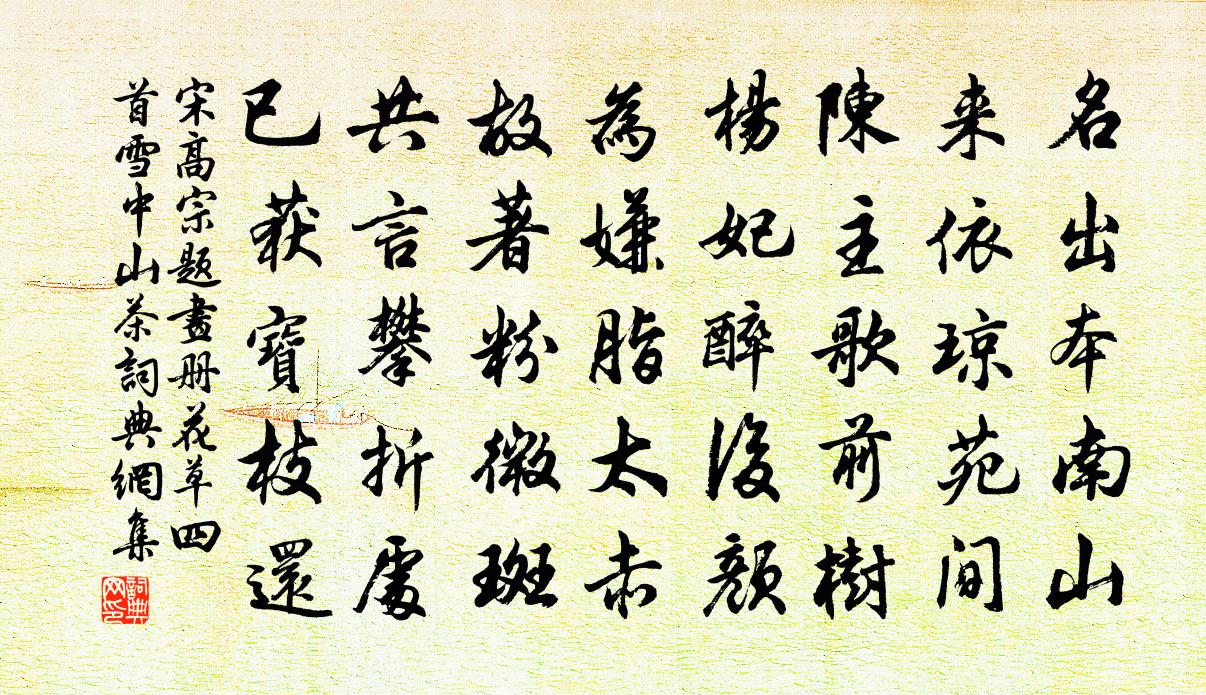 名出本南山
来依琼苑间
陳主歌前樹
楊妃醉後顏
為嫌脂太赤
故著粉微斑
共言攀折處
已获寶枝還
宋高宗題畫册花草四
首雪中山茶詞典網集
詞典
网印